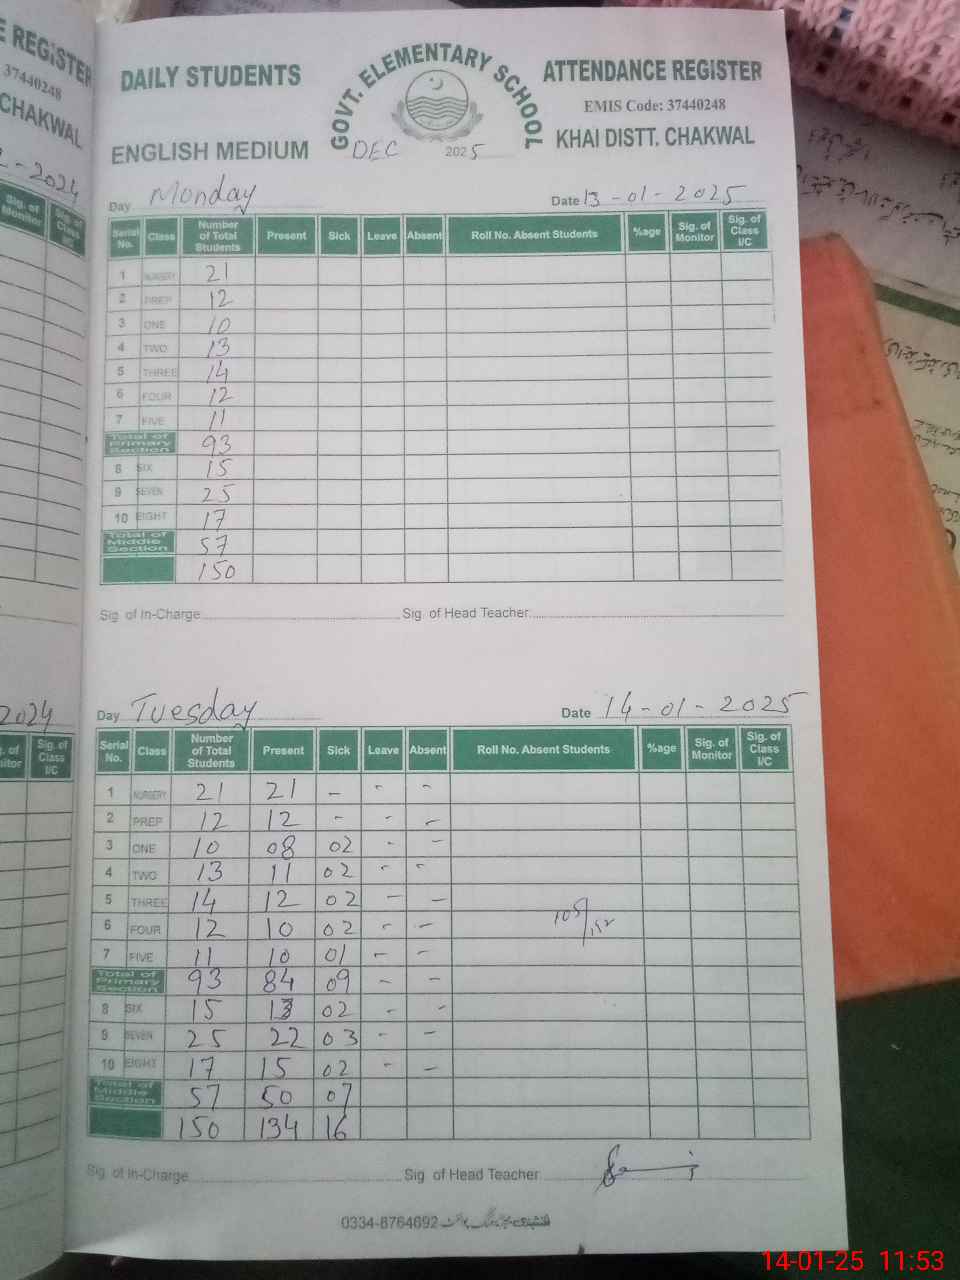 E REGISTER
37440248
CHAKWAL
2-2024
Sig. of Monitor Sig. of Class I/C
2024
Sig. of Class I/C
DAILY STUDENTS
GOVT. ELEMENTARY SCHOOL
ATTENDANCE REGISTER
EMIS Code: 37440248
ENGLISH MEDIUM
DEC 2025
KHAI DISTT. CHAKWAL
Day Monday Date 13-01-2025
Serial No. Class Number of Total Students Present Sick Leave Absent Roll No. Absent Students %age Sig. of Monitor Sig. of Class I/C
1 NURSERY 21
2 PREP 12
3 ONE 10
4 TWO 13
5 THREE 14
6 FOUR 12
7 FIVE 11
Total of Primary Section 93
8 SIX 15
9 SEVEN 25
10 EIGHT 17
Total of Middle Section 57
150
Sig. of In-Charge Sig. of Head Teacher
Day Tuesday Date 14-01-2025
Serial No. Class Number of Total Students Present Sick Leave Absent Roll No. Absent Students %age Sig. of Monitor Sig. of Class I/C
1 NURSERY 21 21 - - -
2 PREP 12 12 - - -
3 ONE 10 08 02 - -
4 TWO 13 11 02 - -
5 THREE 14 12 02 - -
6 FOUR 12 10 02 - -
7 FIVE 11 10 01 - -
Total of Primary Section 93 84 09 - -
8 SIX 15 13 02 - -
9 SEVEN 25 22 03 - -
10 EIGHT 17 15 02 - -
Total of Middle Section 57 50 07
150 134 16
Sig. of In-Charge Sig. of Head Teacher
0334-8764692
14-01-25 11:53